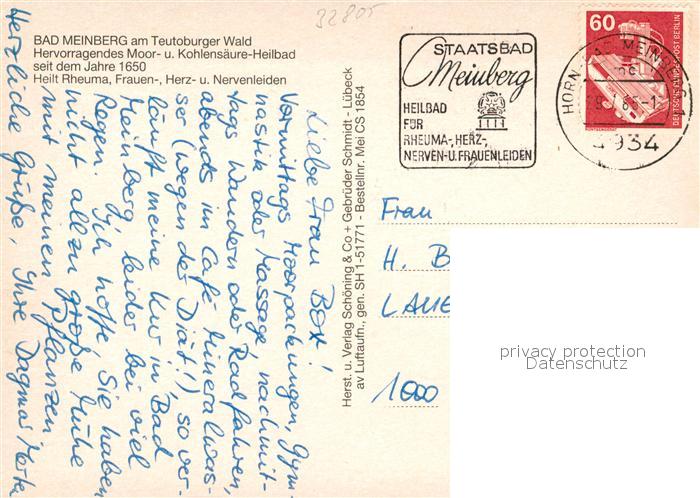 32805
BAD MEINBERG am Teutoburger Wald
Hervorragendes Moor- u. Kohlensäure-Heilbad
seit dem Jahre 1650
Heilt Rheuma, Frauen-, Herz- u. Nervenleiden
Liebe Frau Box!
Vormittags Moorpackungen, Gym-
nastik oder Massage, nachmit-
tags Wandern oder Radfahren,
abends im Café Mineralwas-
ser (wegen der Diät!), so ver-
läuft meine Kur in Bad
Meinberg, leider bei viel
Regen. Ich hoffe, Sie haben
nicht allzu große Mühe
mit meinen Pflanzen.
Herzliche Grüße, Ihre Dagmar
Herst. u. Verlag Schöning & Co + Gebrüder Schmidt - Lübeck
av Luftaufn., gen. SH 1-51771 - Bestellnr. Mei CS 1854
STAATSBAD
Meinberg
HEILBAD
FÜR
RHEUMA-, HERZ-,
NERVEN-U. FRAUENLEIDEN
HORN-BAD MEINBERG
4934
60
DEUTSCHE BUNDESPOST BERLIN
RÖNTGENGERÄT
Frau
H. B
LAUE
1000
privacy protection
Datenschutz